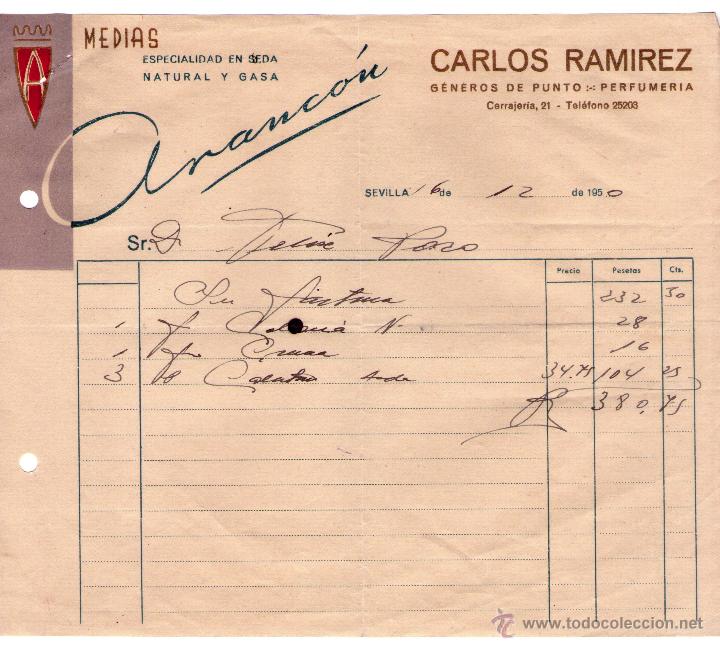 A
MEDIAS
ESPECIALIDAD EN SEDA
NATURAL Y GASA
Arancón
CARLOS RAMIREZ
GÉNEROS DE PUNTO :-: PERFUMERIA
Cerrajería, 21 - Teléfono 25203
SEVILLA 16 de 12 de 1950
Sr. D. Felix Pozo
Precio Pesetas Cts.
Su 232 50
1 28
1 Crema 16
3 34.75 104 25
380,75
todocoleccion
© www.todocoleccion.net